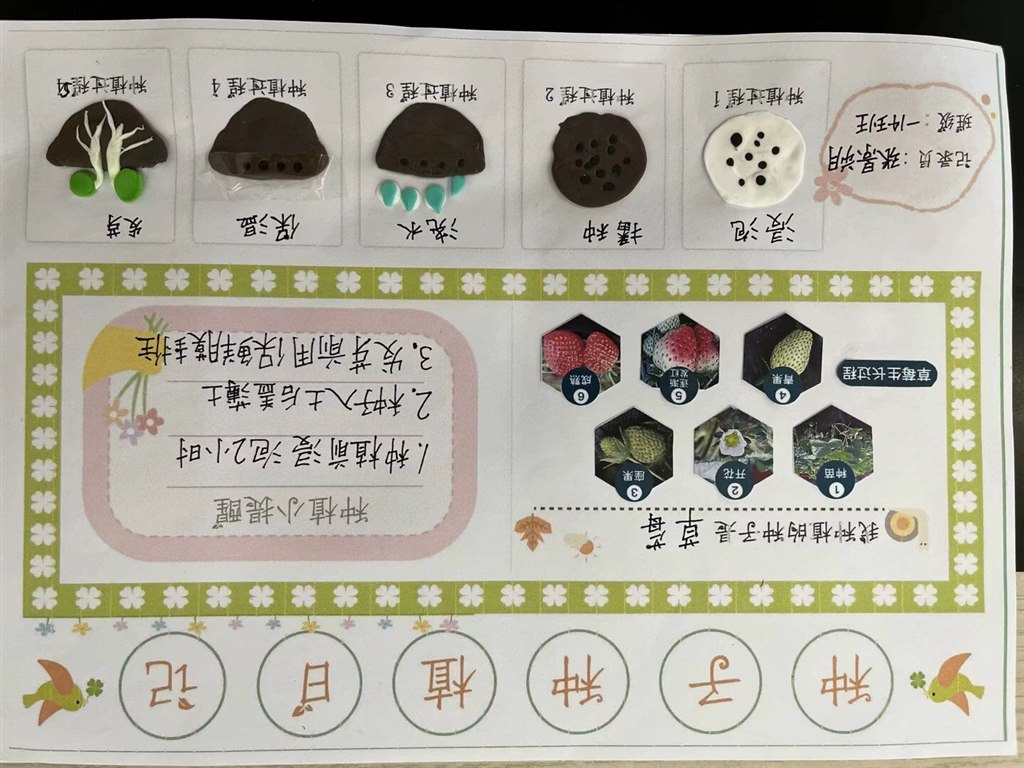 种子种植日记
我种植的种子是草莓
1 种苗
2 开花
3 座果
草莓生长过程
4 青果
5 逐渐发红
6 成熟
种植小提醒
1.种植前浸泡2小时
2.种子入土后盖薄土
3.发芽前用保鲜膜封住
记录员：张
班级：
浸泡
种植过程1
播种
种植过程2
浇水
种植过程3
保温
种植过程4
发芽
种植过程5